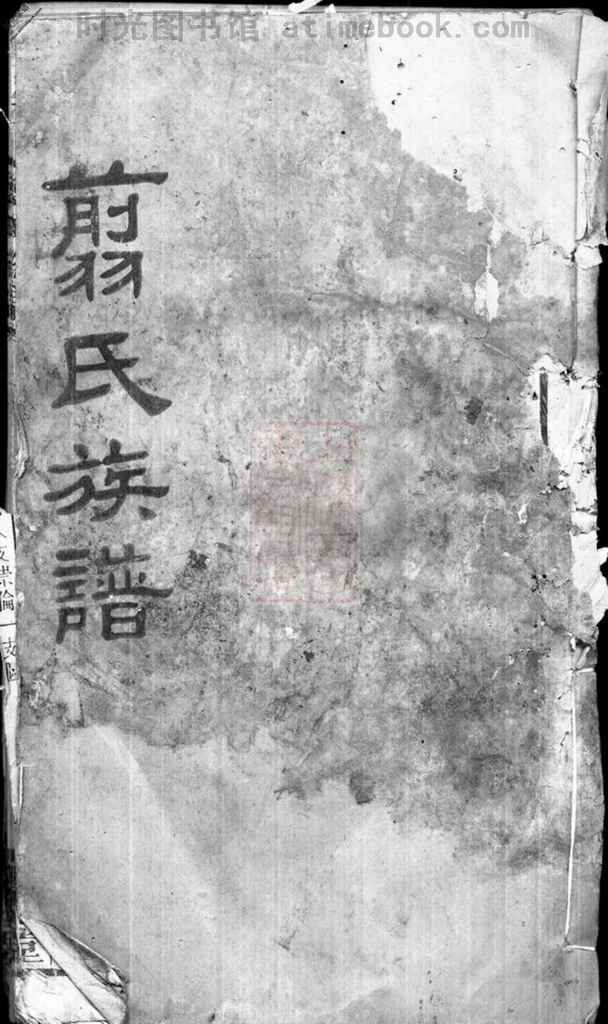 时光图书馆 atimebook.com
翦氏族譜